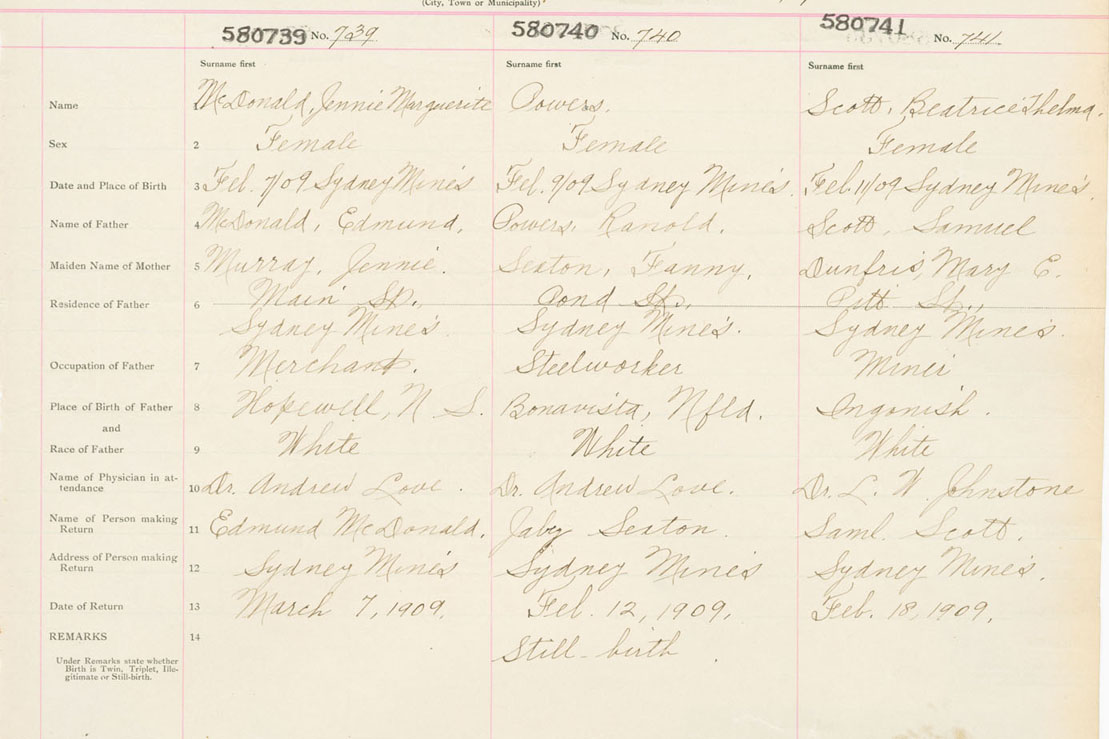 (City, Town or Municipality)
580739 No. 739 580740 No. 740 580741 No. 741
Surname first Surname first Surname first
Name 1 McDonald, Jennie Marguerite Powers. Scott, Beatrice Thelma.
Sex 2 Female Female Female
Date and Place of Birth 3 Feb. 7/09 Sydney Mines Feb. 9/09 Sydney Mines. Feb. 11/09 Sydney Mines.
Name of Father 4 McDonald, Edmund. Powers, Ranold. Scott, Samuel
Maiden Name of Mother 5 Murray, Jennie. Sexton, Fanny. Mary E.
Residence of Father 6 Main St., Pond St., Pitt St.,
Sydney Mines. Sydney Mines. Sydney Mines.
Occupation of Father 7 Merchant. Steelworker Miner
Place of Birth of Father 8 Hopewell, N. S. Bonavista, Nfld. Ingonish.
and
Race of Father 9 White White White
Name of Physician in at-
tendance 10 Dr. Andrew Love. Dr. Andrew Love. Dr. L. W. Johnstone
Name of Person making
Return 11 Edmund McDonald. Sexton. Saml. Scott.
Address of Person making
Return 12 Sydney Mines Sydney Mines Sydney Mines.
Date of Return 13 March 7, 1909. Feb. 12, 1909. Feb. 18, 1909.
REMARKS 14 Still-birth.
Under Remarks state whether
Birth is Twin, Triplet, Ille-
gitimate or Still-birth.